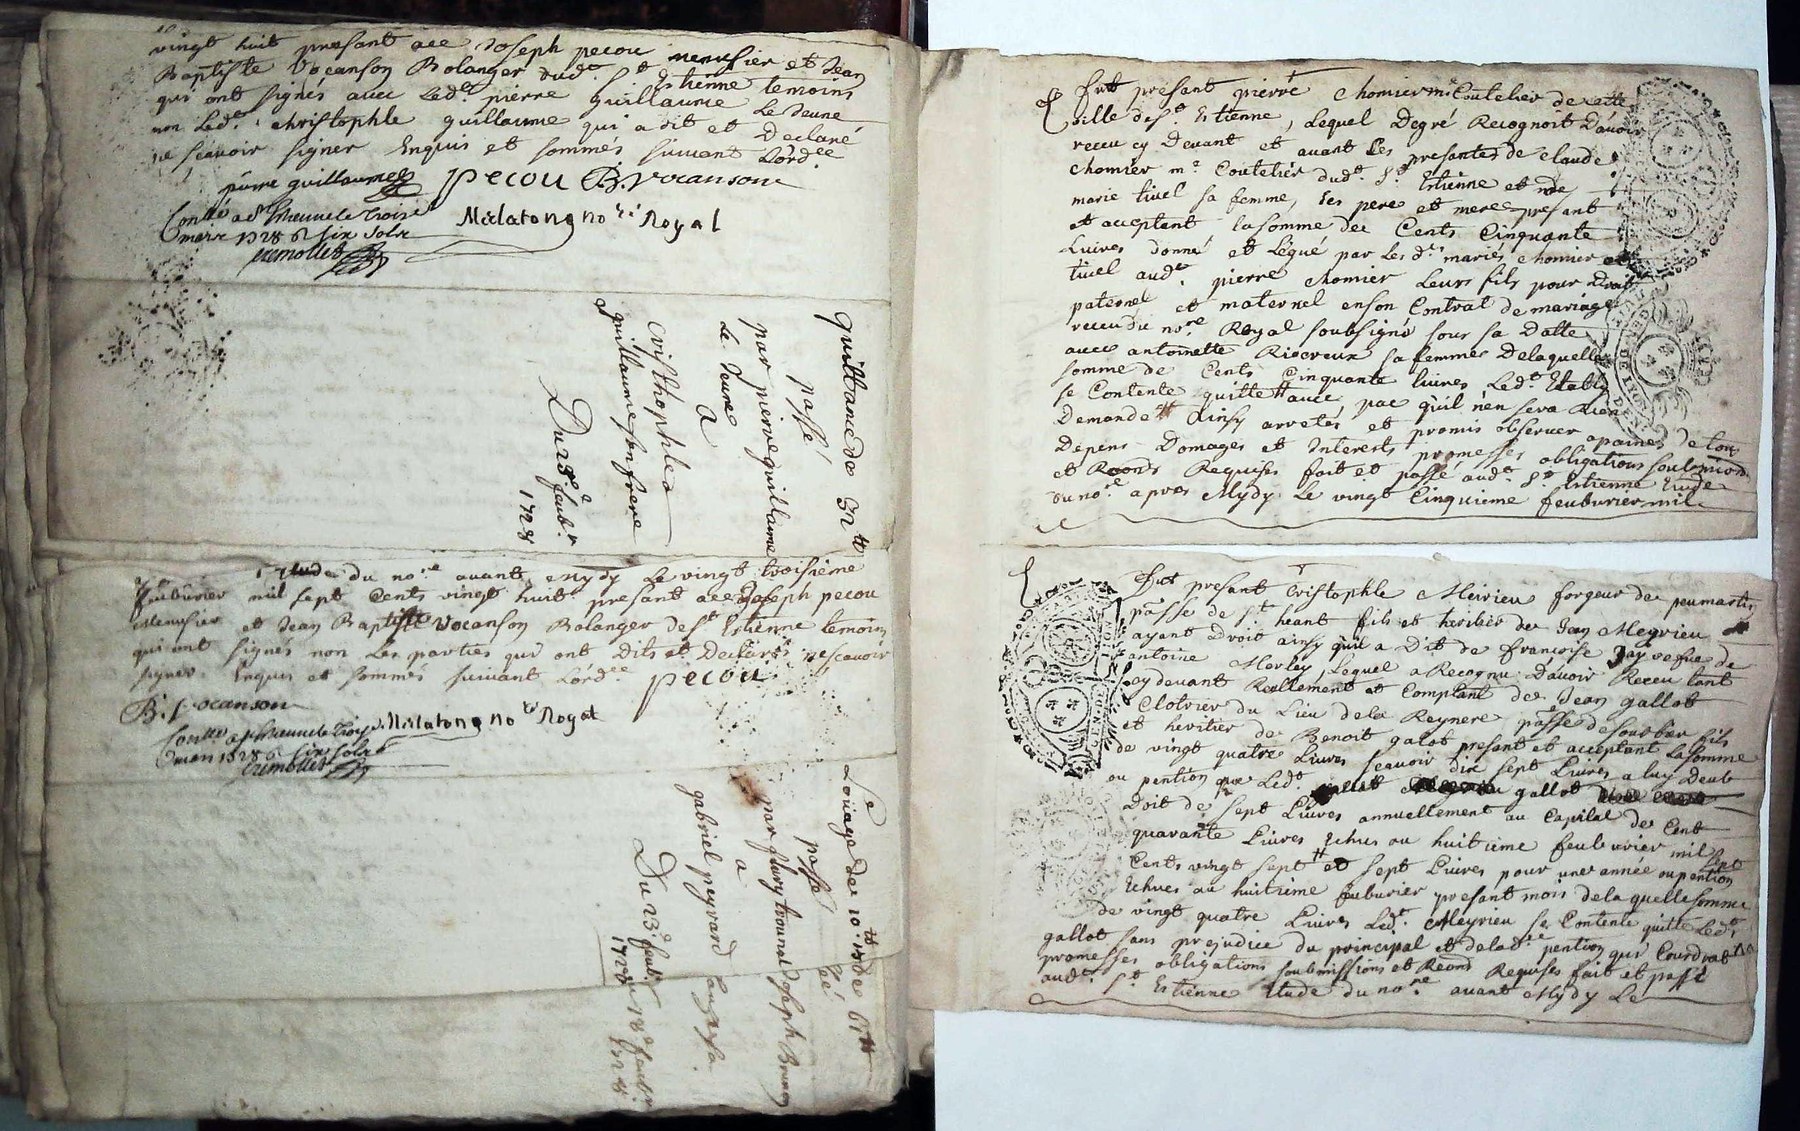 vingt huit presant ace Joseph pecou menusier et Jean
Baptiste Vocanson Bolanger dud.t S.t Estienne temoins
qui ont signés avec Led.t pierre guillaume Le Jeune
non Led.t christophle guillaume qui a dit et Declaré
ne scavoir signer Enquis et sommés suivant Lord.ce
pierre guillaume pecou B. Vocanson
Conllé a St Etienne le trois
mars 1728 six solz
Mèlatong no.re Royal
quittance de 32 tt
passé
par pierre guillaume
Le Jeune
A
Cristhophle
guillaume son frere
Du 23.e faub.r
1728
Etude du no.re avant Mydy Le vingt troisieme
feuburier mil sept Cents vingt huit presant ace Joseph pecou
Menusier et Jean Baptiste Vocanson Bolanger de S.t Estienne temoins
qui ont signés non Les parties qui ont dits et Declarés ne scavoir
signer Enquis et sommés suivant Lord.ce pecou
B. Vocanson
Mèlatong no.re Royal
mars 1728 six solz
Loüage de
passé
par flury
Joseph
a
gabriel peyrard
Du 23.e faub.r
1728
fut presant pierre chomier m.e Coutelier de cette
ville de S.t Estienne, Lequel Degré Recognoit D'avoir
receu cy Devant et avant Les presantes de claude
chomier m.e Coutelier dud.t S.t Estienne et de
marie tivel sa femme, ses pere et mere presant
et acceptant la somme de Cents Cinquante
Livres donné et Légué par Les d.ts mariés chomier et
tivel aud.t pierre chomier Leurs fils pour Droit
paternel et maternel en son Contrat de mariage
receu du no.re Royal soubsigné sous sa Datte
avec antoinette Riocreux sa femme De laquelle
somme de Cents Cinquante Livres Led.t
se Contente quitte avec pac qu'il n'en sera Rien
Demandé Ainsy arretés et promis observer a paines de tous
Depens Domages et Interests promesses obligations soubmissions
et Renon.s Requises fait et passé aud.t S.t Estienne Etude
du no.re apres Mydy Le vingt Cinquieme feuburier mil
Fut presant Cristophle Meirieu forgeur de
passe de S.t heant fils et heritier de Jean Meyrieu
ayant droit ainsy qu'il a Dit de francoise Jay vefve de
antoine Merley Lequel a Recognu D'avoir Receu tant
cy devant Reellement et Comptant de Jean gallot
Clotrier du Lieu de la Reynere passe de Sorbier fils
et heritier de Benoit galot presant et acceptant La somme
de vingt quatre Livres scavoir dix sept Livres a luy Deub
ou pention que Led.t gallot
Doit de sept Livres annuellement au Capital de Cent
quarante Livres Echus au huitieme feuburier mil sept
Cents vingt sept et sept Livres pour une année ou pention
Echues au huitieme feuburier presant mois de la quelle somme
de vingt quatre Livres Led.t Meyrieu se Contente quitte Led.t
gallot sans prejudice du principal et de lad.te pention qui Courdoat
promesses obligations soubmissions et Renon.s Requises fait et passé
aud.t S.t Estienne Etude du no.re avant Mydy Le